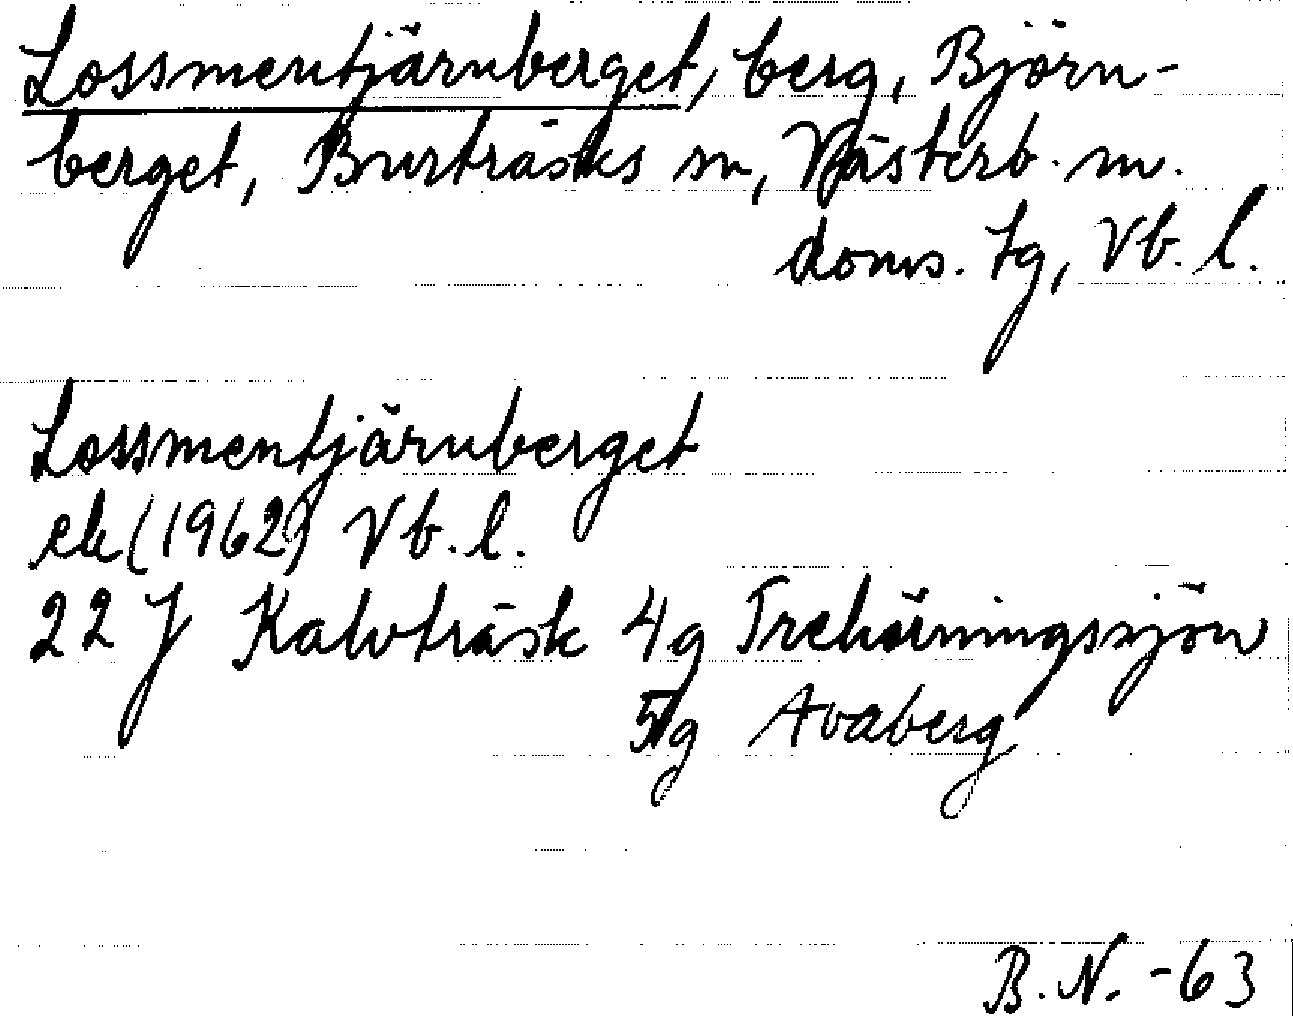 Lossmentjärnberget, berg, Björn-
berget, Burträsks sn, Västerb. n.
doms. tg, Vb. l.
Lossmentjärnberget
ek (1962) Vb. l.
22 J Kalvträsk 4g Trehörningssjön
5g Avaberg
B.N. -63